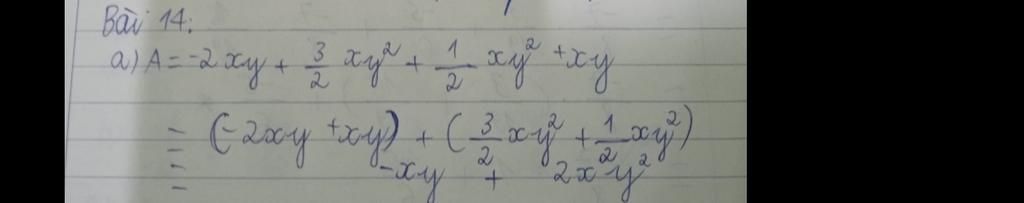 Bài 14:
a) A = -2xy + 3/2 xy² + 1/2 xy² + xy
= (-2xy + xy) + (3/2 xy² + 1/2 xy²)
= -xy + 2xy²
=